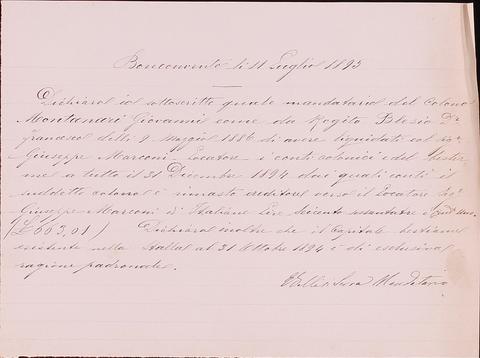 Buonconvento li 11 Luglio 1895
Dichiaro io sottoscritto quale mandatario del Colono
Montanari Giovanni come da Rogito Dr
Francesco delli 9 Maggio 1886 di avere liquidati col Sigr
Giuseppe Marconi Locatore i conti colonici e del bestia-
me a tutto il 31 Dicembre 1894 dai quali conti il
suddetto colono è rimasto creditore verso il Locatore Sigr
Giuseppe Marconi di Italiane Lire seicento sessantatre e
(£ 663,01) Dichiara inoltre che il Capitale bestiame
esistente nella Stalla al 31 Ottobre 1894 è di esclusiva
ragione padronale.
Mandatario